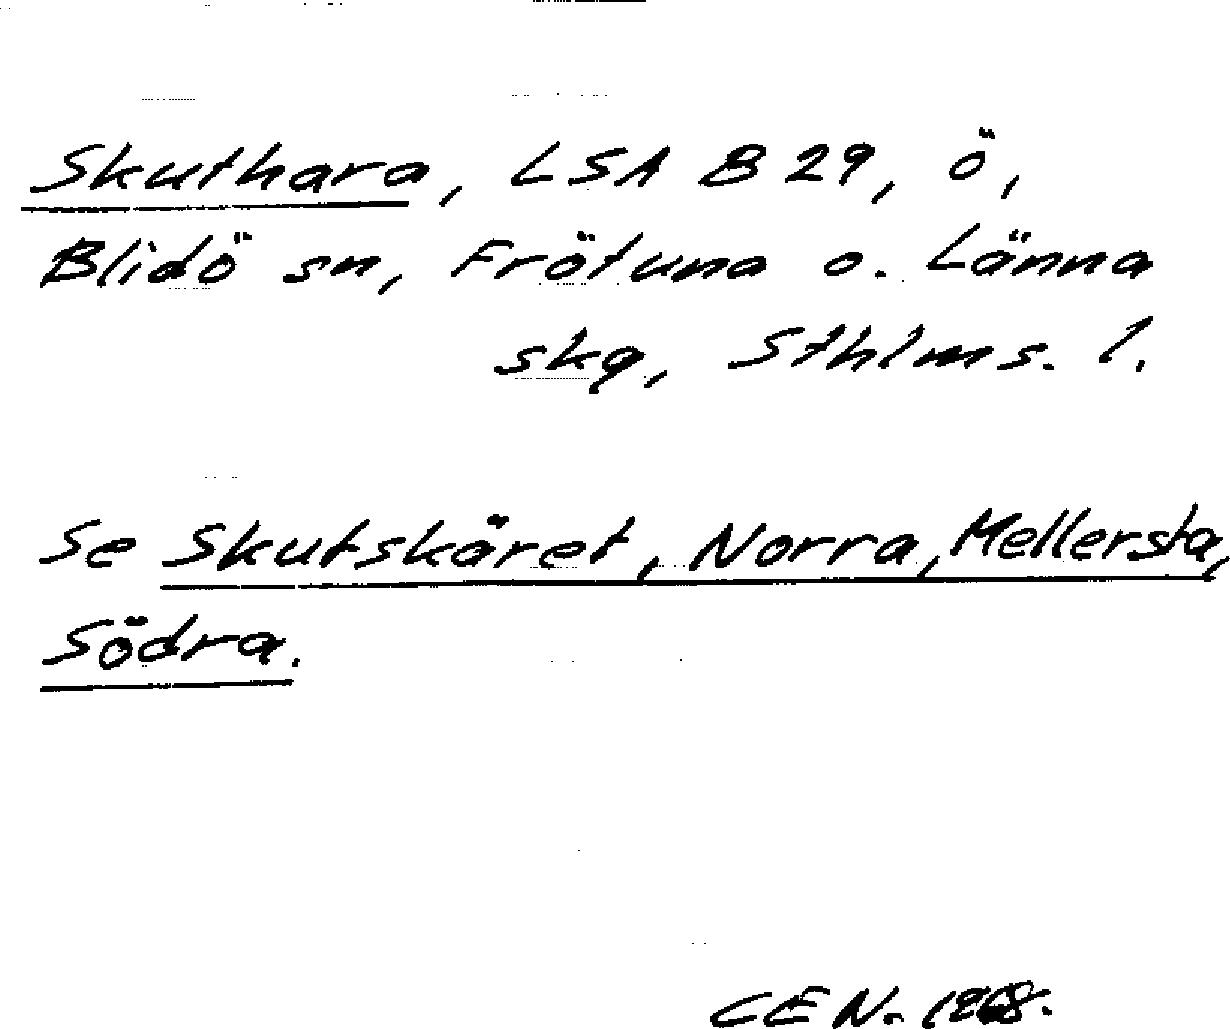 Skuthara, LSA B 29, ö,
Blidö sn, Frötuna o. Länna
skg, Sthlms. l.
Se Skutskäret, Norra, Mellersta,
Södra.
CEN.